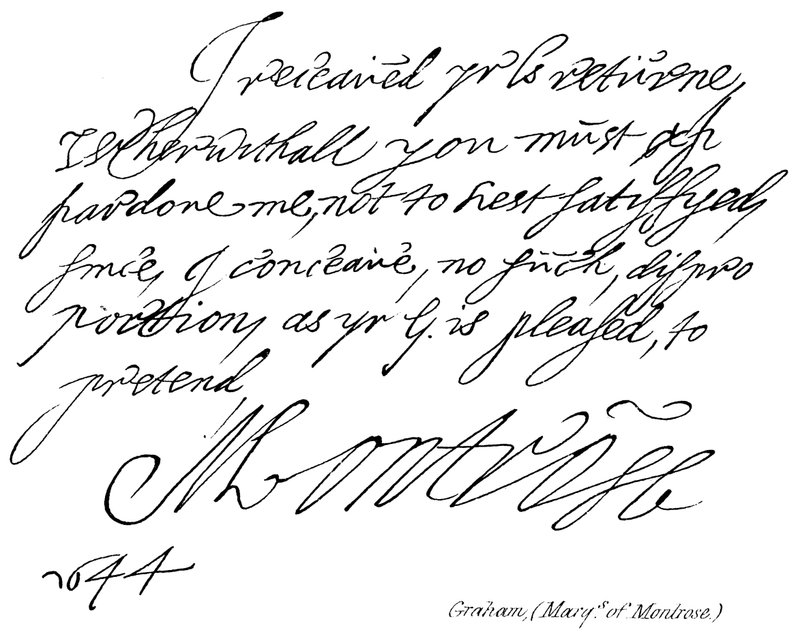 I receaved yr ls returne,
wherwithall you must
pardone me, not to rest satisfyed,
since, I conceave, no such, dispro
portion, as yr L. is pleased, to
pretend,
Montrose
1644
Graham, (Marq.s of Montrose.)